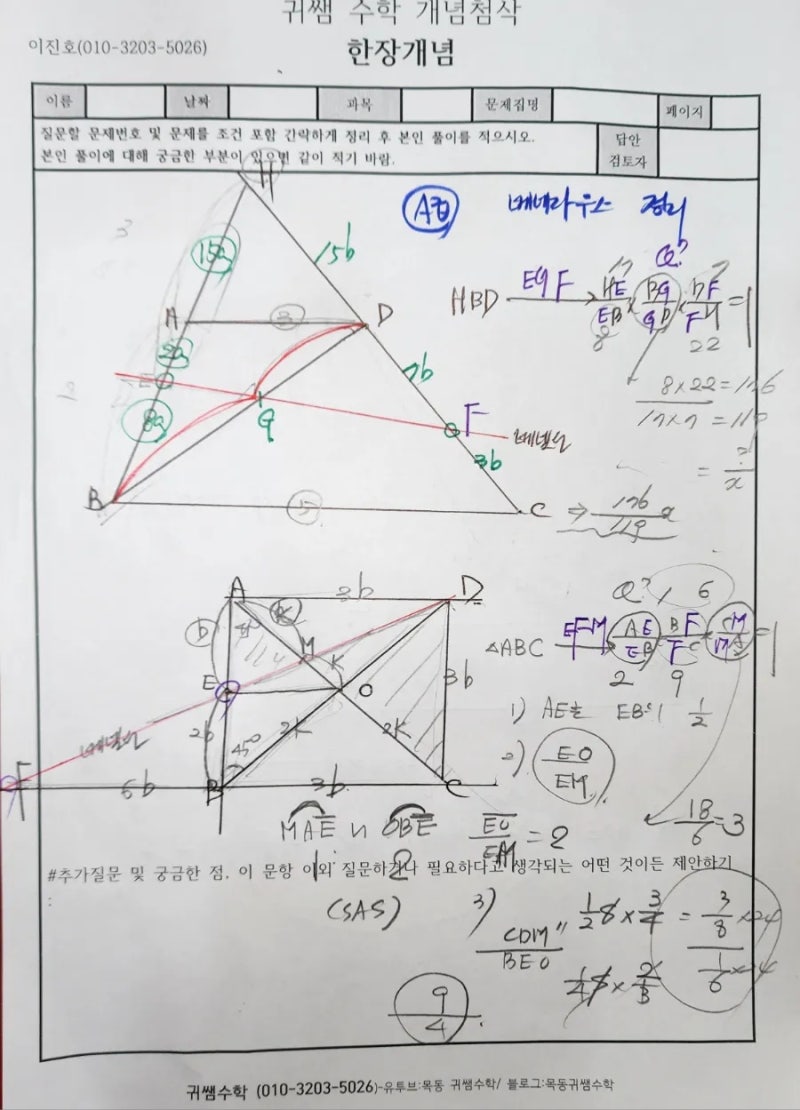 귀쌤 수학 개념첨삭
이진호(010-3203-5026)
한장개념
이름 날짜 과목 문제집명 페이지
질문할 문제번호 및 문제를 조건 포함 간략하게 정리 후 본인 풀이를 적으시오.
본인 풀이에 대해 궁금한 부분이 있으면 같이 적기 바람.
답안
검토자
H
A형 메네라우스 정리
15a 15b
Q?
HBD EGF HE/EB × BG/GD × DF/FH = 1
17 7
8 22
A 3 D
2a 7b
E
8a G F
메넬선
3b
8×22=176
17×7=119
= ?/x
B 5 C
⇒ 176/119 a
A 3b D
Q?, 6
b K
M
△ABC EFM AE/EB BF/FC CM/MA = 1
2 9
E K O 3b
1) AE는 EB의 1/2
메넬선 2b 45° 2K 2K
2) EO/EM
F 6b B 3b C
18/6=3
MAE ∽ OBE EO/EM = 2
1 2
#추가질문 및 궁금한 점, 이 문항 이외 질문하거나 필요하다고 생각되는 어떤 것이든 제안하기
:
(SAS) 3) CDM/BEO
1/2 × 3/4 = 3/8 ×24
1/4 × 2/3 1/6 ×24
9/4
귀쌤수학 (010-3203-5026)-유투브:목동 귀쌤수학/ 블로그:목동귀쌤수학